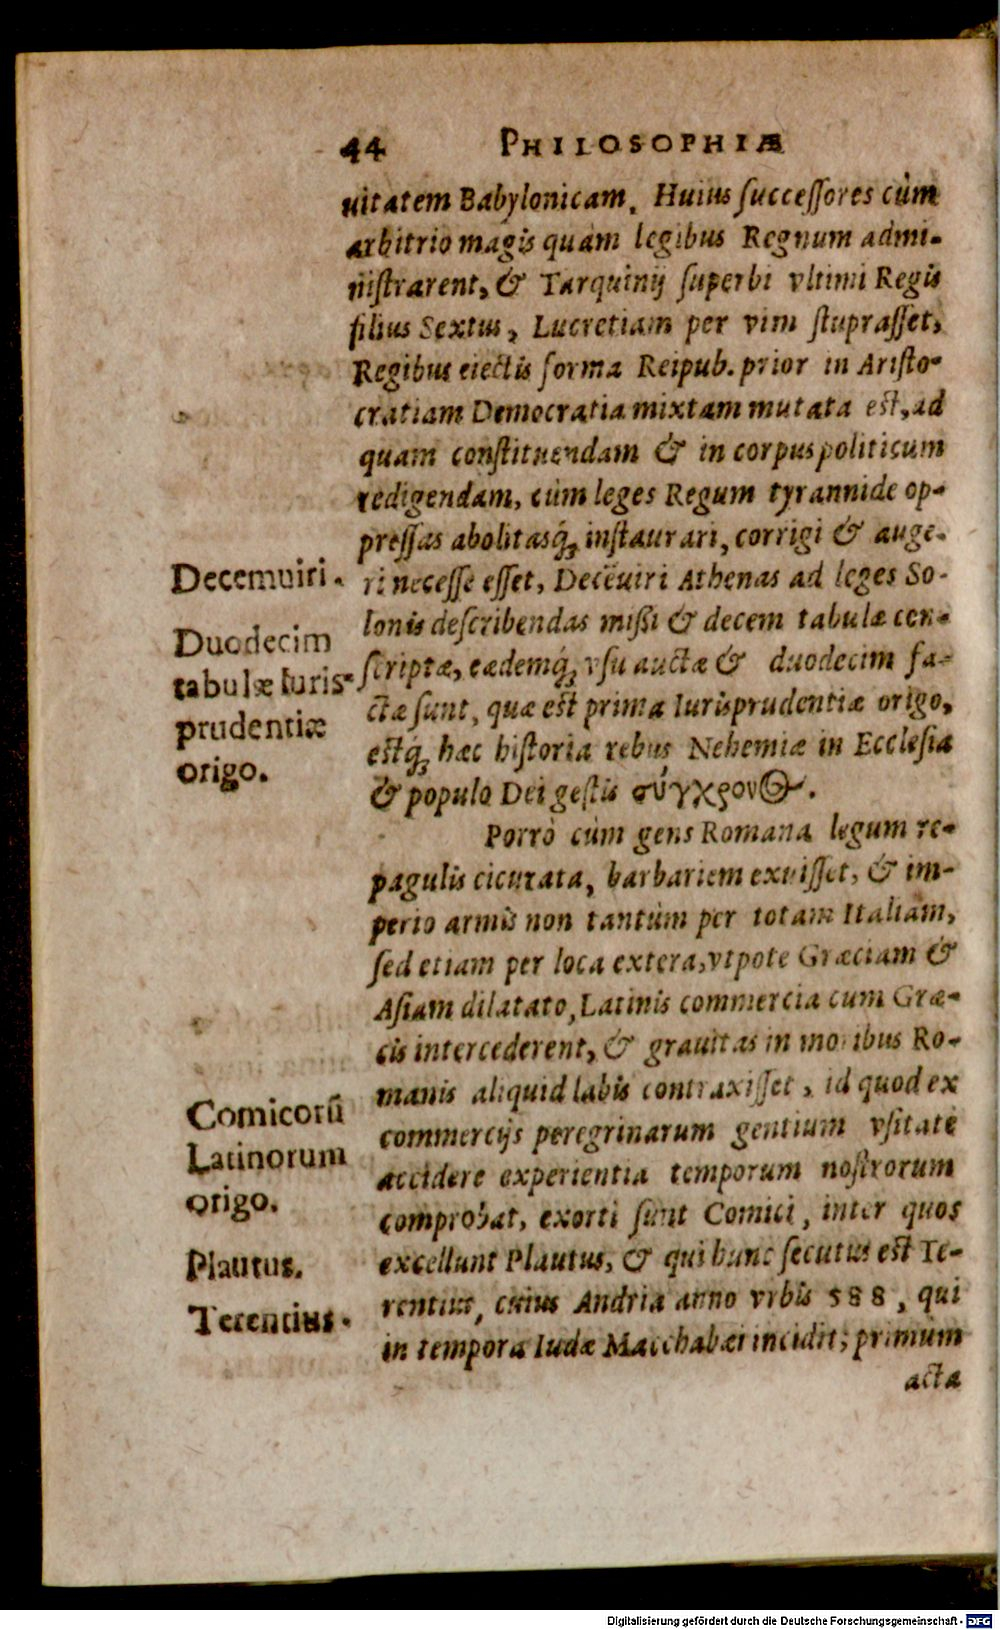 44 PHILOSOPHIÆ
uitatem Babylonicam. Huius ſucceſſores cùm
arbitrio magis quàm legibus Regnum admi-
niſtrarent, & Tarquinij ſuperbi vltimi Regis
filius Sextus, Lucretiam per vim ſtupraſſet,
Regibus eiectis forma Reipub. prior in Ariſto-
cratiam Democratia mixtam mutata eſt, ad
quam conſtituendam & in corpus politicum
redigendam, cùm leges Regum tyrannide op-
preſſas abolitasq́ꝫ inſtaurari, corrigi & auge-
Decemuiri.
ri neceſſe eſſet, Decēuiri Athenas ad leges So-
Duodecim
lonis deſcribendas miſſi & decem tabulæ con-
tabulæ Iuris-
ſcriptæ, eædemq́ꝫ vſu auctæ & duodecim fa-
prudentiæ
ctæ ſunt, quæ eſt prima Iurisprudentiæ origo,
origo.
eſtq́ꝫ hæc hiſtoria rebus Nehemiæ in Eccleſia
& populo Dei geſtis σύγχρονος.
Porrò cùm gens Romana legum re-
pagulis cicurata, barbariem exuiſſet, & im-
perio armis non tantùm per totam Italiam,
ſed etiam per loca extera, vtpote Græciam &
Aſiam dilatato, Latinis commercia cum Græ-
cis intercederent, & grauitas in moribus Ro-
manis aliquid labis contraxiſſet, id quod ex
Comicorū
commercijs peregrinarum gentium vſitatè
Latinorum
accidere experientia temporum noſtrorum
origo.
comprobat, exorti ſunt Comici, inter quos
Plautus.
excellunt Plautus, & qui hunc ſecutus eſt Te-
Terentius.
rentius, cuius Andria anno vrbis 588, qui
in tempora Iudæ Macchabæi incidit, primùm
acta
Digitalisierung gefördert durch die Deutsche Forschungsgemeinschaft - DFG